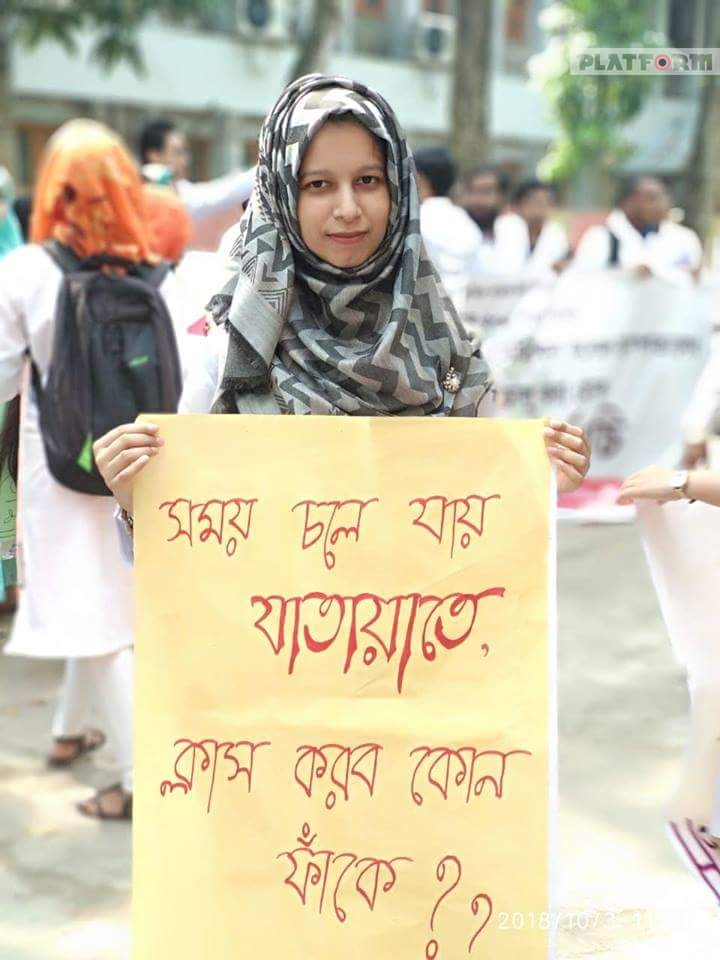 PLATFORM
সময় চলে যায়
যাতায়াতে,
ক্লাস করব কোন
ফাঁকে ?,
2018/10/3